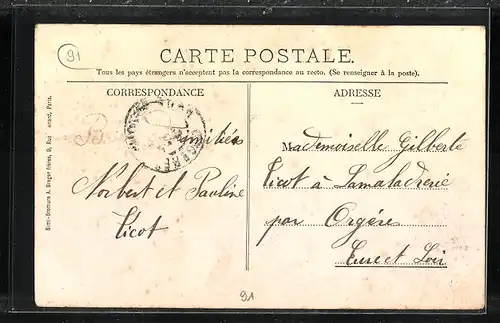 91
CARTE POSTALE.
Tous les pays étrangers n'acceptent pas la correspondance au recto. (Se renseigner à la poste).
CORRESPONDANCE
ADRESSE
amitiés
Norbert et Pauline
Ticot
Mademoiselle Gilberte
Ticot à Lamaladrerie
par Orgère
Eure et Loir
Simi-Bromure A. Breger frères, 9, Rue Paris.
91